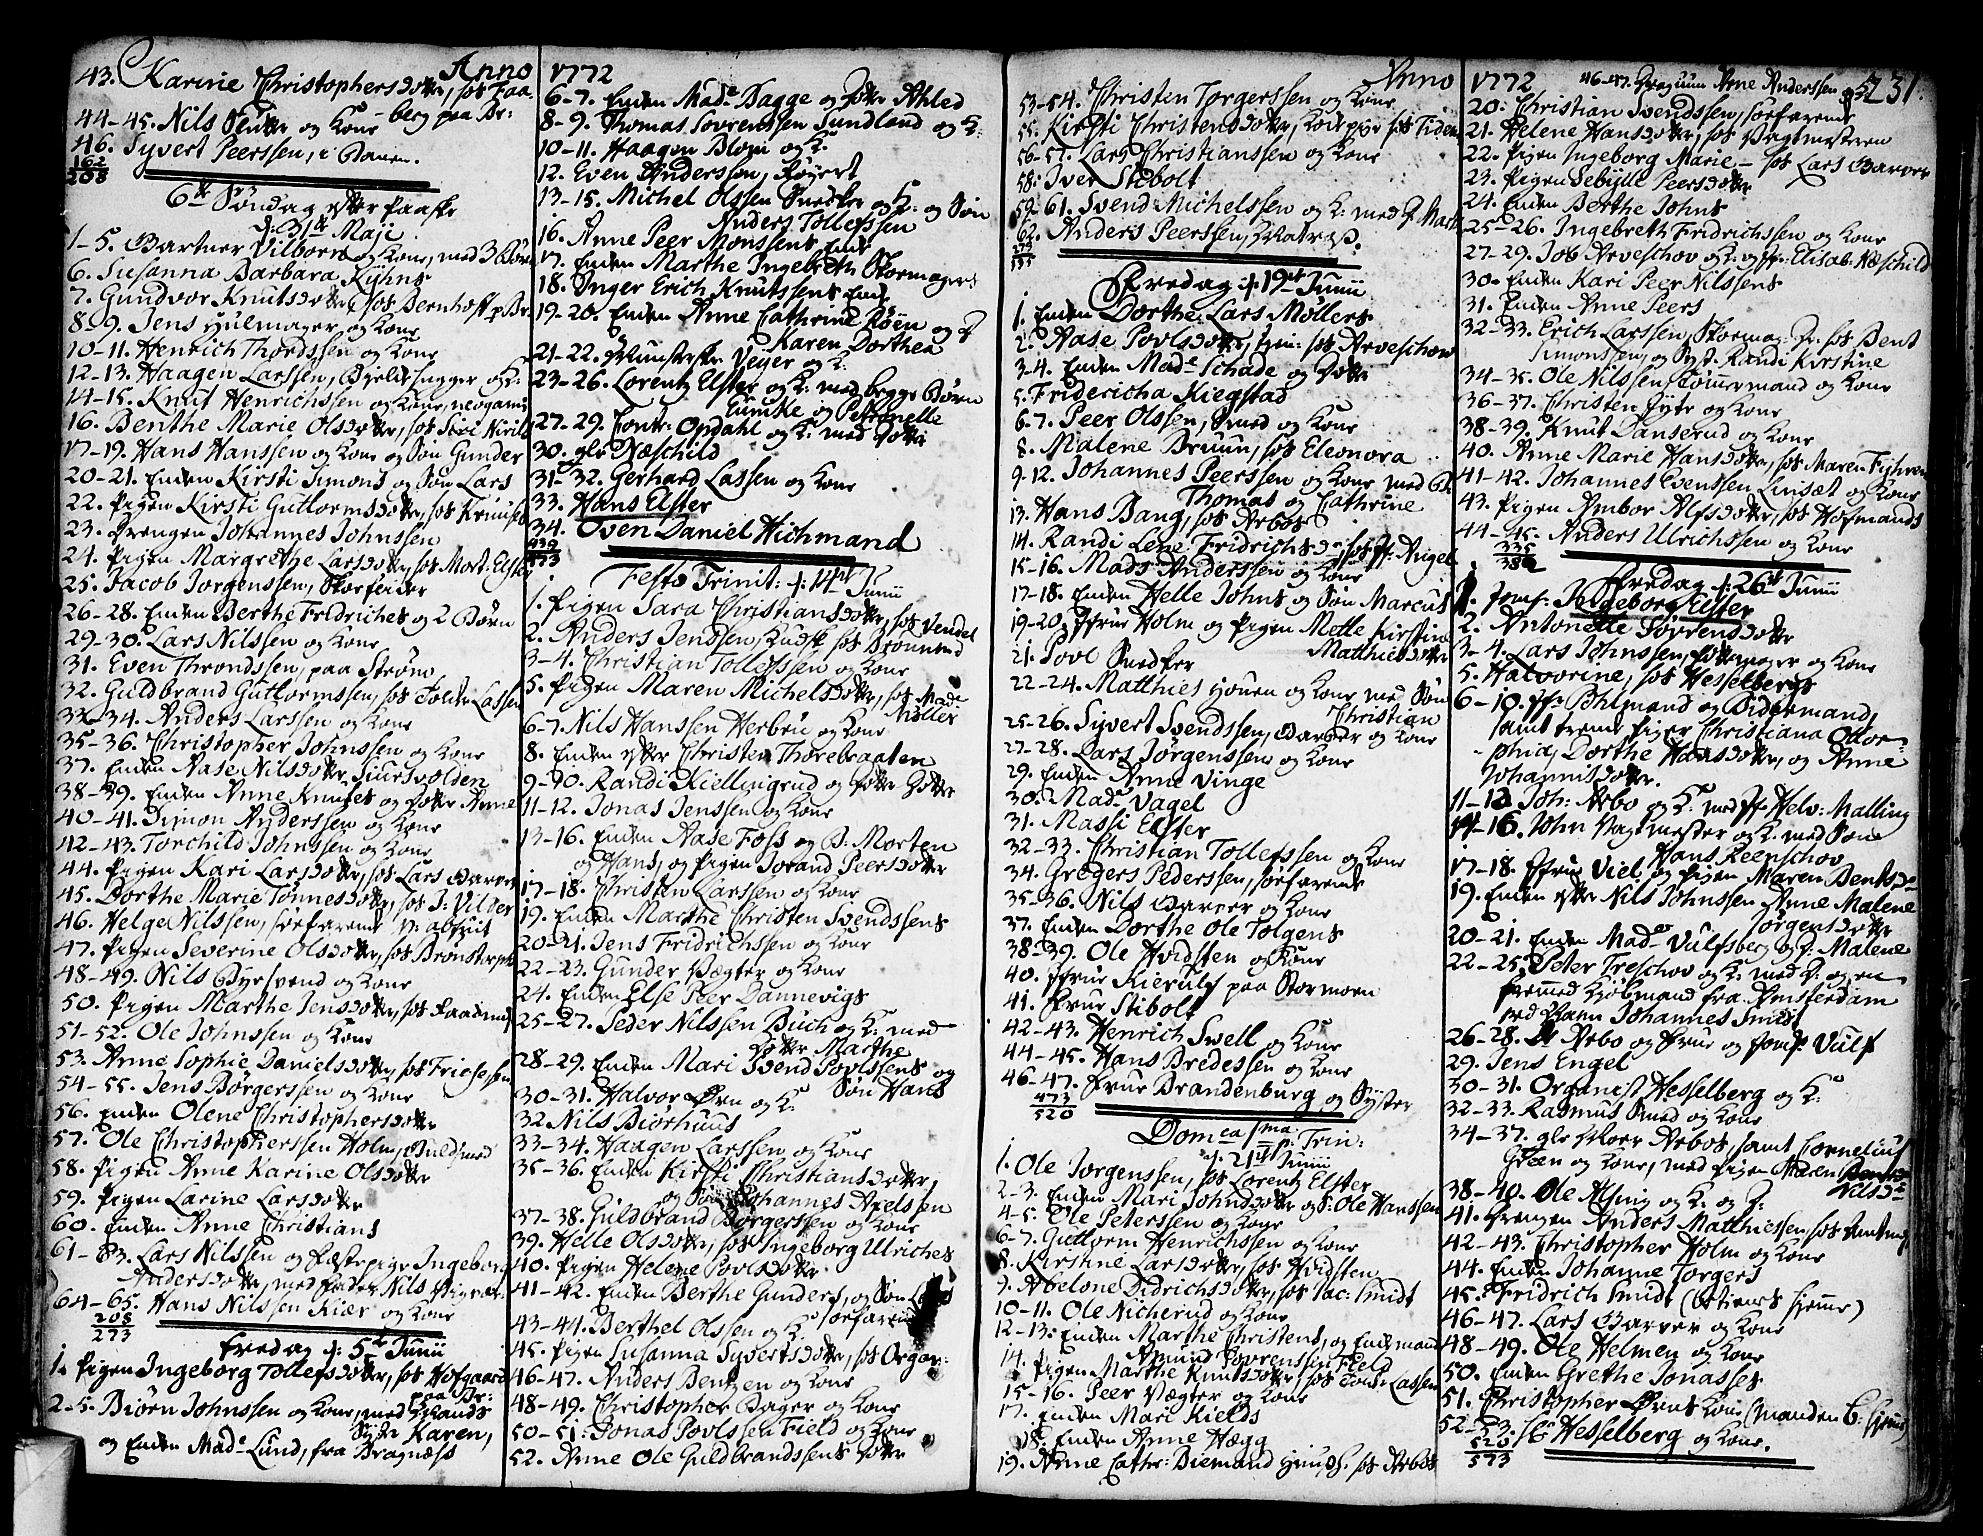 Anno
43. Karine Christophersdotter, hos Faa-
44-45. Nils og Kone - berg paa Br:
46. Syvert Peerssen,
162
208
6te Søndag efter Paaske
d: 31te Maji
1-5. Gartner Vilborn og Kone, med 3 Børn
6. Susanna Barbara Kyhns
7. Gundvor Knutsdotter, hos Bernhoft p. Br.
8-9. Jens Hiulmager og Kone
10-11. Henrich Thordssen og Kone
12-13. Haagen Larssen, og K:
14-15. Knut Henrichssen og Kone, neogami
16. Benthe Marie Olsdotter, hos
17-19. Hans Hanssen og Kone og Søn Gunder
20-21. Enken Kirsti Simons og Søn Lars
22. Pigen Kirsti Guttormsdotter, hos
23. Drengen Johannes Johnssen
24. Pigen Margrethe Larsdotter, hos Mort: Elster
25. Jacob Jørgenssen, Skorfeier
26-28. Enken Berthe Fridriches og 2 Børn
29-30. Lars Nilssen og Kone
31. Even Throndssen, paa Strøm
32. Guldbrand Guttormssen, hos Lassen
33-34. Anders Larssen og Kone
35-36. Christopher Johnssen og Kone
37. Enken Aase Nilsdotter
38-39. Enken Anne Knutses og Dotter Anne
40-41. Simon Anderssen og Kone
42-43. Torchild Johnssen og Kone
44. Pigen Kari Larsdotter, hos Lars Garver
45. Dorthe Marie Tønnesdotter, hos J: Vilter
46. Helge Nilssen, søefarende
47. Pigen Severine Olsdotter, hos
48-49. Nils Byesvend og Kone
50. Pigen Marthe Jensdotter, hos
51-52. Ole Johnssen og Kone
53. Anne Sophie Danielsdotter, hos
54-55. Jens Børgerssen og Kone
56. Enken Olene Christophersdotter
57. Ole Christopherssen Holm, Guldsmed
58. Pigen Anne Karine Olsdotter
59. Pigen Larine Larsdotter
60. Enken Anne Christians
61-63. Lars Nilssen og Fæstepige Ingebor
Andersdotter, med Fader Nils
64-65. Hans Nilssen Kier og Kone
208
273
Fredag d: 5te Junii
1. Pigen Ingeborg Tollefsdotter, hos Hofgaard
paa Br:
2-5. Biørn Johnssen og Kone, med Mands
Syster Karen,
og Enken Made Lund, fra Bragnæss
1772
6-7. Enken Made Bagge og Dotter Ahled
8-9. Thomas Sovrenssen Sundland og K:
10-11. Haagen Blom og K:
12. Even Anderssen, Røyert
13-15. Michel Olssen Snedker og K: og Søn
Anders Tollefssen
16. Anne Peer Monssens Enke
17. Enken Marthe Ingebreth Skormagers
18. Inger Erich Knutssens Enke
19-20. Enken Anne Cathrine Røien og D
Karen Dorthea
21-22. Veyer og K:
23-26. Lorentz Elster og K: med begge Børn
Eunike og Petronelle
27-29. Contr: Opdahl og K: med Dotter
30. glr Næschild
31-32. Gerhard Lassen og Kone
33. Hans Elster
34. Oven Daniel Hichmand
439
473
Festo Trinit: d: 14de Junii
1. Pigen Sara Christiansdotter, hos Vendel
2. Anders Jenssen, hos Brønlund
3-4. Christian Tollefssen og Kone
5. Pigen Maren Michelsdotter, hos Made
Møller
6-7. Nils Hanssen Herbru og Kone
8. Enken efter Christen Thorebraaten
9-90. Randi Kiellingrud og Dotter Gitte
11-12. Jonas Jenssen og Kone
13-16. Enken Aase Foss og B: Morten
og Hans, og Pigen Jorand Peersdotter
17-18. Christen Larssen og Kone
19. Enken Marthe Christen Svendssens
20-21. Jens Fridrichssen og Kone
22-23. Gunder Vægter og Kone
24. Enken Else Peer Dannevigs
25-27. Peder Nilssen Buch og K: med
Dotter Marthe
28-29. Enken Mari Svend Povlssens og
Søn Hans
30-31. Halvor Ovn og K:
32 Nils Biørhuus
33-34. Haagen Larssen og Kone
35-36. Enken Kirsti Christiansdotter,
og Søn Johannes Axelsen
37-38. Guldbrand Børgerssen og Kone
39. Helle Olsdotter, hos Ingeborg Ulriches
40. Pigen Helene Povlsdotter
41-42. Enken Berthe Gunders, og Søn
søefarende
43-44. Berthel Olssen og K:
45. Pigen Susanna Syvertsdotter, hos Organ:
46-47. Anders Bentzen og Kone
48-49. Christopher Bager og Kone
50-51. Jonas Povlssen Field og Kone
52. Anne Ole Guldbrandssens Dotter
Anno
53-54. Christen Torgerssen og Kone
55. Kirsti Christensdotter,
56-57. Lars Christianssen og Kone
58. Iver Stibolt
59-61. Svend Michelssen og K: med D. Marthe
62. Anders Peerssen, Matros.
473
535
Fredag d: 19de Junii
1. Enken Dorthe Lars Møllers
2. Aase Povlsdotter, hos Arveschow
3-4. Enken Made Schade og Dotter
5. Fridericha Kiegstad
6-7. Peer Olssen, Smed og Kone
8. Malene Bruun, hos Eleonora
9-12. Johannes Peerssen og Kone med B:
Thomas og Cathrine
13. Hans Bang, hos Arbos
14. Randi Lene Fridrichsdr hos Angel
15-16. Mads Anderssen og Kone
17-18. Enken Helle Johns og Søn Marcus
19-20. Frue Holm og Pigen Mette Kirstin
Matthiesdotter
21. Povl Snedker
22-24. Matthies Houen og Kone med Søn
Christian
25-26. Syvert Svendssen, Garver og Kone
27-28. Lars Jørgenssen og Kone
29. Enken Anne Vinge
30. Made Vagel
31. Massi Elster
32-33. Christian Tollefssen og Kone
34. Gregers Pederssen, søefarende
35-36. Nils Garver og Kone
37. Enken Dorthe Ole Tolgens
38-39. Ole Hvidsten og Kone
40. Frue Kierulf paa Stormoen
41. Frue Stibolt
42-43. Henrich Swell og Kone
44-45. Hans Bredessen og Kone
46-47. Frue Brandenburg og Syster
473
520
Domca 1ma p: Trin:
d: 21de Junii
1. Ole Jørgenssen, hos Lorentz Elster
2-3. Enken Mari Johnsdotter og S: Ole Hanssen
4-5. Ole Peterssen og Kone
6-7. Guttorm Henrichssen og Kone
8. Kirstine Larsdotter, hos Hvidsten
9. Abelone Didrichsdotter, hos Jac: Smidt
10-11. Ole Nicherud og Kone
12-13. Enken Marthe Christens, og Enkemand
Amund Sovrenssen Field
14. Pigen Marthe Knutsdotter, hos Lassen
15-16. Peer Vægter og Kone
17. Enken Mari Kields
18. Enken Anne Hægg
19. Anne Cathr: Biemand hos Arbos
1772
46-47. Anne Anderssen
231.
20. Christian Svendssen, søefarende
21. Helene Hansdotter, hos Vagtmesteren
22. Pigen Ingeborg Marie - hos Lars Garver
23. Pigen Sebylle Peersdotter
24. Enken Berthe Johns
25-26. Ingebreth Fridrichssen og Kone
27-29. Job Arveschov og K: og Jfr: Elisab: Næschild
30. Enken Kari Peer Nilssens
31. Enken Anne Peers
32-33. Erich Larssen, Skormag: Dr. hos Bent
Simonssen, og Syst. Randi Kirstine
34-35. Ole Nilssen, Tømmermand og Kone
36-37. Christen Jyde og Kone
38-39. Knut Danserud og Kone
40. Anne Marie Hansdotter, hos Maren
41-42. Johannes Evenssen Linsæt og Kone
43. Pigen Ambor Alfsdotter, hos Hofmands
44-45. Anders Ulrichssen og Kone
335
380
Fredag d: 26de Junii
1. Jomf: Ingeborg Elster
2. Antonette Sørrensdotter
3-4. Lars Johnssen, og Kone
5. Halvorine, hos Hesselbergs
6-10. Jfr Phlmand og Bidermand,
samt trende Piger Christiana Ottor-
phia, Dorthe Hansdotter, og Anne
Johannisdotter.
11-13. Joh: Arbo og K: med Jfr Helv: Malling
14-16. John Vagtmester og K. med Søn
Hans Reenschov
17-18. Frue Viel og Pigen Maren Bentsdr
19. Enken efter Nils Johnssen Anne Malene
Jørgensdotter
20-21. Enken Made Vulfsberg og D. Malene
22-25. Peter Treschov og K: med D. og en
fremmed Kiøbmand fra Amsterdam
ved Navn Johannes Smidt
26-28. Arbo og Frue og Jomf. Vulf
29. Jens Engel
30-31. Organist Hesselberg og K:
32-33. Rasmus Smed og Kone
34-37. glr Moer Arbos, samt Cornelius
Green og Kone, med Pigen Maren
Nilsdr
38-40. Ole Alsing og K: og D:
41. Drengen Anders Matthiessen, hos
42-43. Christopher Holm og Kone
44. Enken Johanne Torgers
45. Fridrich Smidt
46-47. Lars Garver og Kone
48-49. Ole Helmen og Kone
50. Enken Grethe Jonasses
51. Christopher Ovns Kone (Manden
52-53. Hesselberg og Kone.
520
573